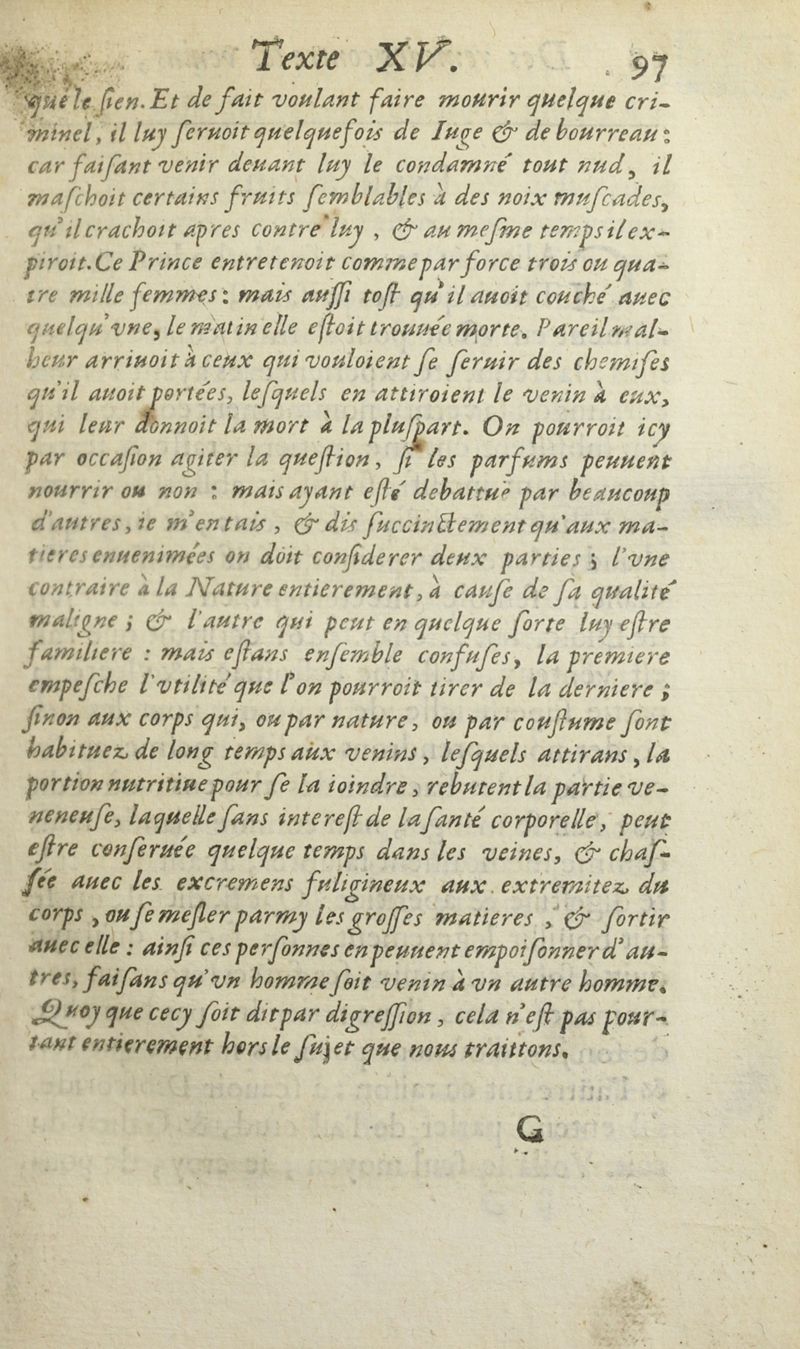 Texte XV. 97
que le ſien. Et de fait voulant faire mourir quelque cri-
minel, il luy ſeruoit quelquefois de Iuge & de bourreau :
car faiſant venir deuant luy le condamné tout nud, il
maſchoit certains fruits ſemblables à des noix muſcades,
qu'il crachoit apres contre luy , & au meſme temps il ex-
piroit. Ce Prince entretenoit comme par force trois ou qua-
tre mille femmes : mais auſſi toſt qu'il auoit couché auec
quelqu'vne, le matin elle eſtoit trouuée morte. Pareil mal-
heur arriuoit à ceux qui vouloient ſe ſeruir des chemiſes
qu'il auoit portées, leſquels en attiroient le venin à eux,
qui leur donnoit la mort à la pluſpart. On pourroit icy
par occaſion agiter la queſtion, ſi les parfums peuuent
nourrir ou non : mais ayant eſté debattue par beaucoup
d'autres, ie m'en tais , & dis ſuccinctement qu'aux ma-
tieres enuenimées on doit conſiderer deux parties ; l'vne
contraire à la Nature entierement, à cauſe de ſa qualité
maligne ; & l'autre qui peut en quelque ſorte luy eſtre
familiere : mais eſtans enſemble confuſes, la premiere
empeſche l'vtilité que l'on pourroit tirer de la derniere ;
ſinon aux corps qui, ou par nature, ou par couſtume ſont
habituez de long temps aux venins , leſquels attirans , la
portion nutritiue pour ſe la ioindre , rebutent la partie ve-
neneuſe, laquelle ſans intereſt de la ſanté corporelle, peut
eſtre conſeruée quelque temps dans les veines, & chaſ-
ſée auec les excremens fuligineux aux extremitez du
corps , ou ſe meſler parmy les groſſes matieres , & ſortir
auec elle : ainſi ces perſonnes en peuuent empoiſonner d'au-
tres, faiſans qu'vn homme ſoit venin à vn autre homme.
Quoy que cecy ſoit dit par digreſſion , cela n'eſt pas pour-
tant entierement hors le ſujet que nous traittons.
G